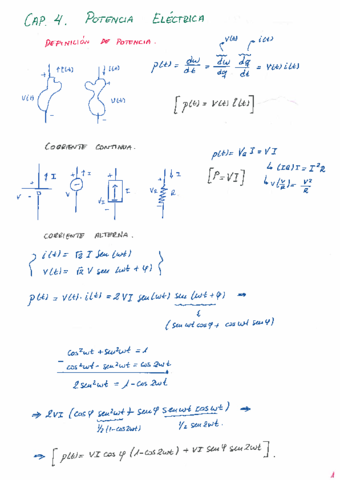 CAP. 4. POTENCIA ELÉCTRICA
DEFINICIÓN DE POTENCIA.
v(t) i(t)
p(t) = dw/dt = dw/dq dq/dt = v(t) i(t)
↑i(t) ↓i(t)
v(t) v(t)
[p(t) = v(t) i(t)]
CORRIENTE CONTINUA.
p(t) = V_R I = V I
[P = VI] ↳ (IR) I = I²R
↳ V(V/R) = V²/R
↑I ↑I I ↓I
V V V_R R
CORRIENTE ALTERNA.
i(t) = √2 I sen(wt)
v(t) = √2 V sen(wt + φ)
p(t) = v(t) · i(t) = 2VI sen(wt) sen(wt + φ) ⇒
(sen wt cos φ + cos wt sen φ)
cos²wt + sen²wt = 1
- cos²wt - sen²wt = cos 2wt
2 sen²wt = 1 - cos 2wt
⇒ 2VI (cos φ sen²wt + sen φ sen wt cos wt) ⇒
1/2 (1 - cos 2wt) 1/2 sen 2wt
⇒ [p(t) = VI cos φ (1 - cos 2wt) + VI sen φ sen 2wt].
1